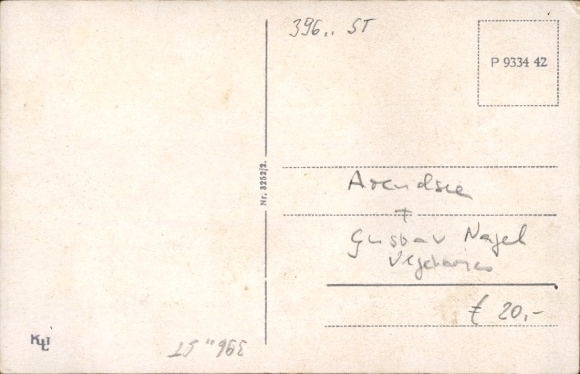 396,, ST
P 9334 42
Nr. 3252/2.
Arendsee
+
Gustav Nagel
€ 20,-
396,, ST